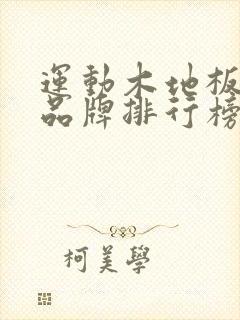 運動木地板
品牌排行榜
柯美學